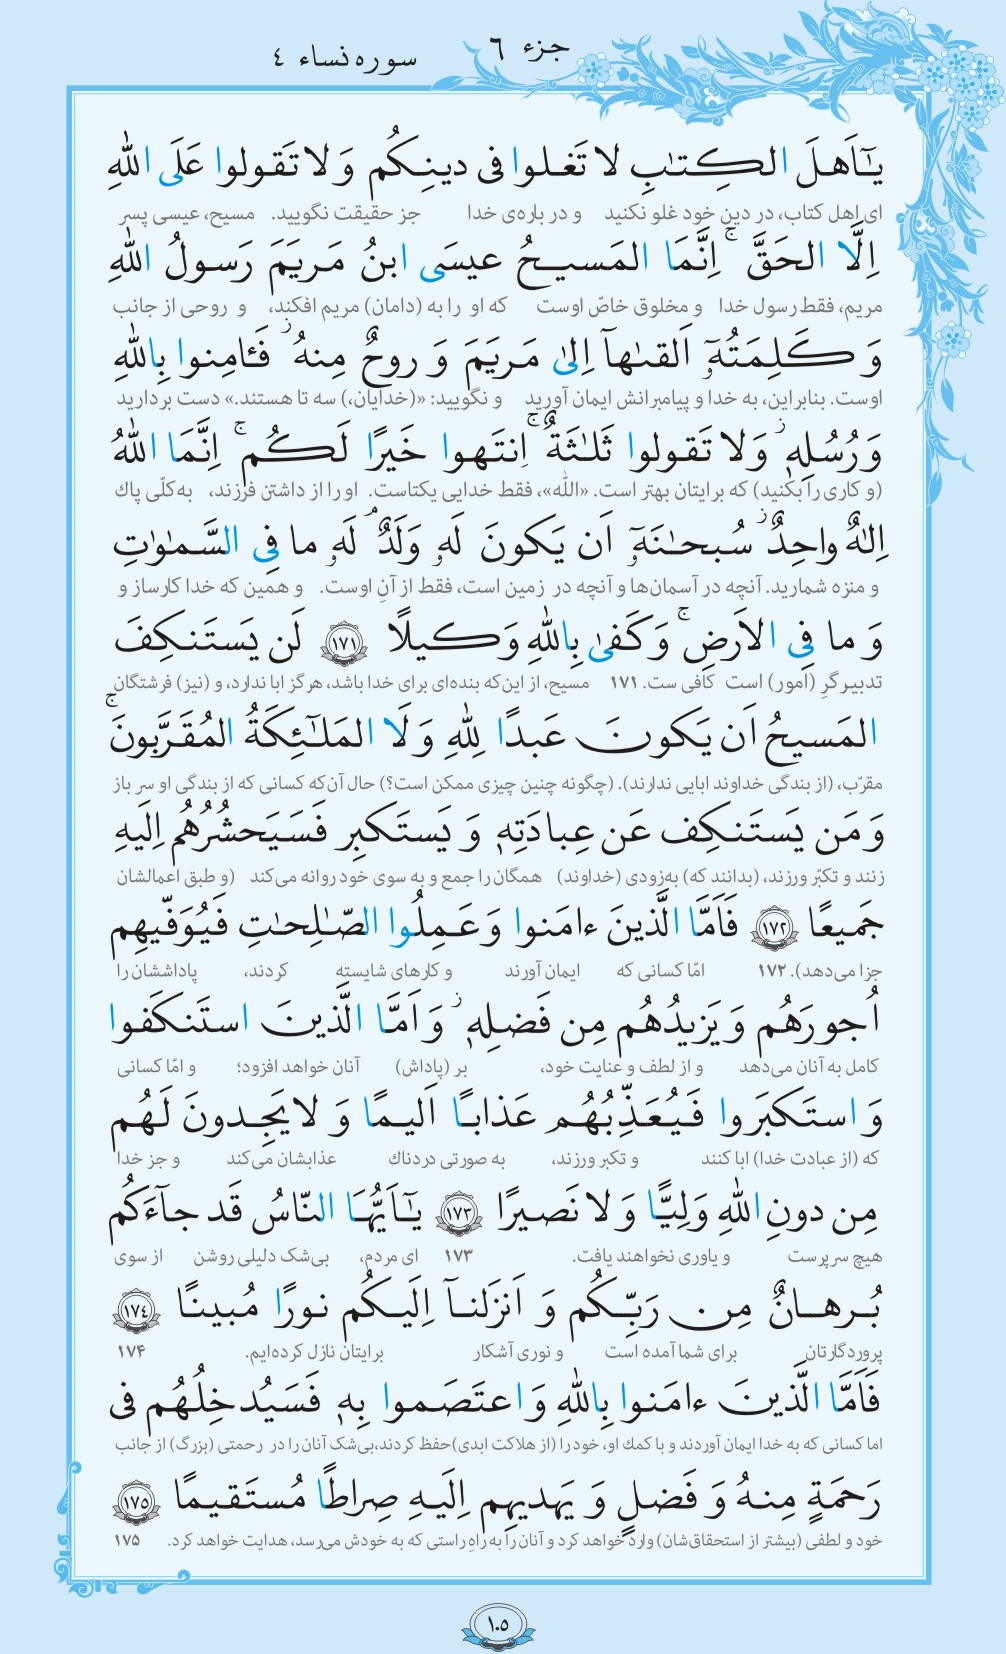 جزء ٦
سوره نساء ٤
يـٰٓاَهلَ الكِتـٰبِ لا تَغلوا فى دينِكُم وَ لا تَقولوا عَلَى اللّٰهِ
ای اهل کتاب، در دینِ خود غلو نکنید و در باره‌ی خدا جز حقیقت نگویید. مسیح، عیسی پسر
اِلَّا الحَقَّ ۚ اِنَّمَا المَسيحُ عيسَى ابنُ مَريَمَ رَسولُ اللّٰهِ
مریم، فقط رسول خدا و مخلوق خاصّ اوست که او را به (دامان) مریم افکند، و روحی از جانب
وَ كَلِمَتُهٗٓ اَلقىٰهآ اِلىٰ مَريَمَ وَ روحٌ مِنهُ ۖ فَـٔامِنوا بِاللّٰهِ
اوست. بنابراین، به خدا و پیامبرانش ایمان آورید و نگویید: «(خدایان،) سه تا هستند.» دست بردارید
وَرُسُلِهٖ ۖ وَلا تَقولوا ثَلـٰثَةٌ ۚ اِنتَهوا خَيرًا لَكُم ۚ اِنَّمَا اللّٰهُ
(و کاری را بکنید) که برایتان بهتر است. «الله»، فقط خدایی یکتاست. او را از داشتن فرزند، به‌کلّی پاك
اِلـٰهٌ واحِدٌ ۖ سُبحـٰنَهٗٓ اَن يَكونَ لَهٗ وَلَدٌ ۘ لَهٗ ما فِى السَّمـٰوٰتِ
و منزه شمارید. آنچه در آسمان‌ها و آنچه در زمین است، فقط از آنِ اوست. و همین که خدا کارساز و
وَ ما فِى الاَرضِ ۚ وَكَفىٰ بِاللّٰهِ وَكيلًا ١٧١ لَن يَستَنكِفَ
تدبیرگرِ (امور) است کافی ست. ۱۷۱ مسیح، از این‌که بنده‌ای برای خدا باشد، هرگز ابا ندارد، و (نیز) فرشتگان
المَسيحُ اَن يَكونَ عَبدًا لِلّٰهِ وَ لَا المَلـٰٓئِكَةُ المُقَرَّبونَ ۚ
مقرّب، (از بندگی خداوند ابایی ندارند). (چگونه چنین چیزی ممکن است؟) حال آن‌که کسانی که از بندگی او سر باز
وَ مَن يَستَنكِف عَن عِبادَتِهٖ وَ يَستَكبِر فَسَيَحشُرُهُم اِلَيهِ
زنند و تکبّر ورزند، (بدانند که) به‌زودی (خداوند) همگان را جمع و به سوی خود روانه می‌کند (و طبق اعمالشان
جَميعًا ١٧٢ فَاَمَّا الَّذينَ ءامَنوا وَ عَمِلُوا الصّـٰلِحـٰتِ فَيُوَفّيهِم
جزا می‌دهد). ۱۷۲ امّا کسانی که ایمان آورند و کارهای شایسته کردند، پاداششان را
اُجورَهُم وَ يَزيدُهُم مِن فَضلِهٖ ۖ وَ اَمَّا الَّذينَ استَنكَفوا
کامل به آنان می‌دهد و از لطف و عنایت خود، بر (پاداش) آنان خواهد افزود؛ و امّا کسانی
وَ استَكبَروا فَيُعَذِّبُهُم عَذابًا اَليمًا وَ لا يَجِدونَ لَهُم
که (از عبادت خدا) ابا کنند و تکبر ورزند، به صورتی دردناك عذابشان می‌کند و جز خدا
مِن دونِ اللّٰهِ وَلِيًّا وَ لا نَصيرًا ١٧٣ يـٰٓاَيُّهَا النّاسُ قَد جآءَكُم
هیچ سرپرست و یاوری نخواهند یافت. ۱۷۳ ای مردم، بی‌شک دلیلی روشن از سوی
بُرهانٌ مِن رَبِّكُم وَ اَنزَلنآ اِلَيكُم نورًا مُبينًا ١٧٤
پروردگارتان برای شما آمده است و نوری آشکار برایتان نازل کرده‌ایم. ۱۷۴
فَاَمَّا الَّذينَ ءامَنوا بِاللّٰهِ وَ اعتَصَموا بِهٖ فَسَيُدخِلُهُم فى
اما کسانی که به خدا ایمان آوردند و با کمك او، خود را (از هلاکت ابدی) حفظ کردند، بی‌شک آنان را در رحمتی (بزرگ) از جانب
رَحمَةٍ مِنهُ وَ فَضلٍ وَ يَهديهِم اِلَيهِ صِراطًا مُستَقيمًا ١٧٥
خود و لطفی (بیشتر از استحقاق‌شان) وارد خواهد کرد و آنان را به راهِ راستی که به خودش می‌رسد، هدایت خواهد کرد. ۱۷۵
١٠٥